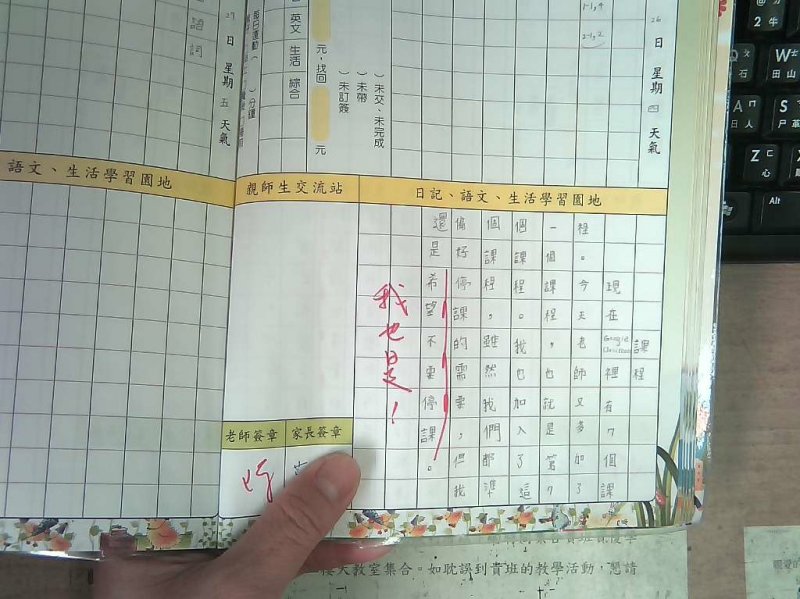 26日 星期四 天氣
1-1,4
2-1,2
)未交、未完成
)未帶
)未訂簽
元,找回 元
英文 生活 綜合
27日 星期五 天氣
語詞
日記、語文、生活學習園地
課程
現在Google Classroom裡有7個課
程。今天老師又多加了
一個課程,也就是
個課程。我也加入了這
個課程,雖然我們都準
備好停課的需要,但我
還是希望不要停課。
我也是!
親師生交流站
老師簽章
家長簽章
語文、生活學習園地
大教室集合。如耽誤到貴班的教學活動,懇請